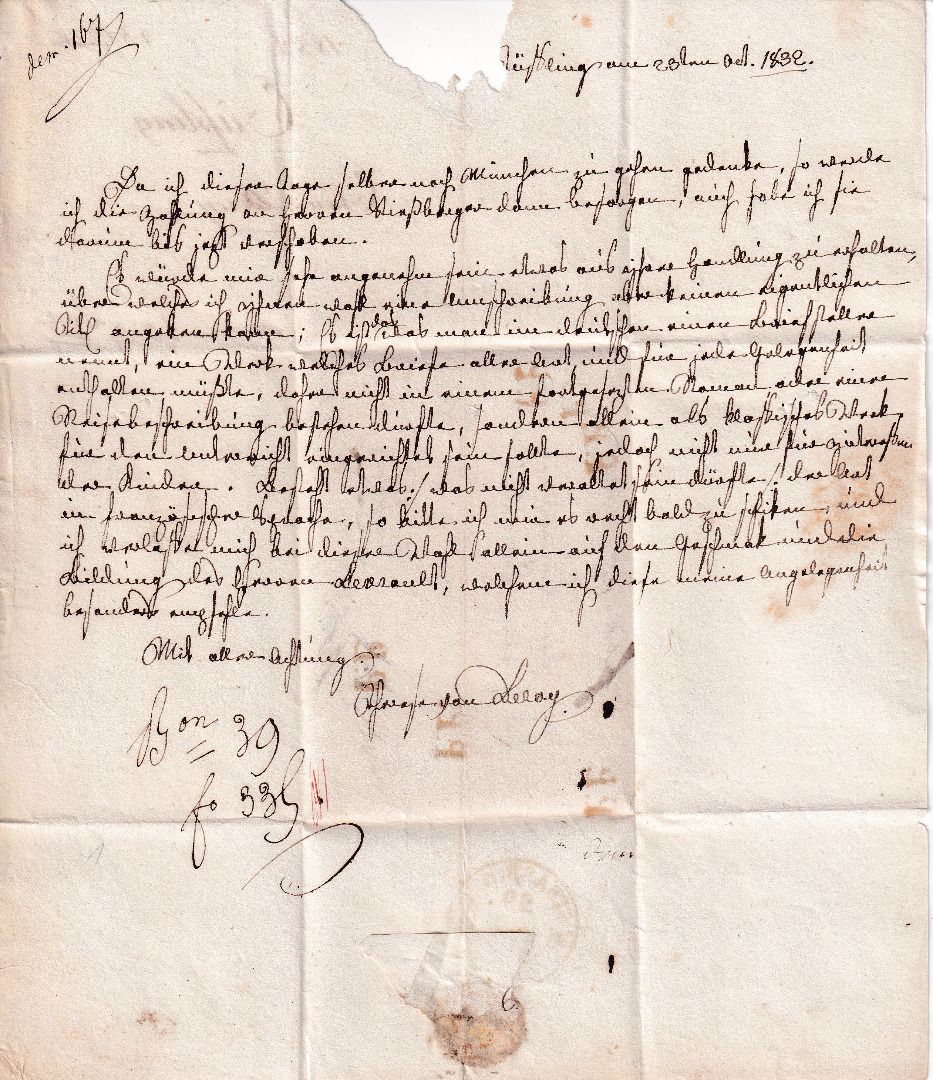 dem. 167
Tüßling am 23ten Oct. 1832.
Da ich dieser Tage selber nach München zu gehen gedenke, so werde
ich die Zahlung an Herren Rießberger dann besorgen, auch habe ich sie
darum bis jezt verschoben.
Es würde mir sehr angenehm sein etwas aus ihrer Handlung zu erhalten,
über welches ich ihnen wohl eine Umschreibung aber keinen eigentlichen
Titl angeben kann; Es ist das was man im deutschen einen Briefsteller
nennt, ein Werk welches Briefe aller Art und für jede Gelegenheit
enthalten müßte, daher nicht in einem fortgesezten Roman oder einer
Reisebeschreibung bestehen dürfte, sondern allein als klassisches Werk
für den Unterricht eingerichtet sein sollte, jedoch nicht nur für
der Kinder. Besteht etwas /: was nicht veraltet sein dürfte :/ der Art
in französischer Sprache, so bitte ich mir es recht bald zu schiken, und
ich verlasse mich bei dieser Wahl allein auf den Geschmak und die
Bildung des Herren Levrault, welchem ich diese meine Angelegenheit
besonders empfehle.
Mit aller Achtung
Therese von Leroy.
Bon 39
fo 335